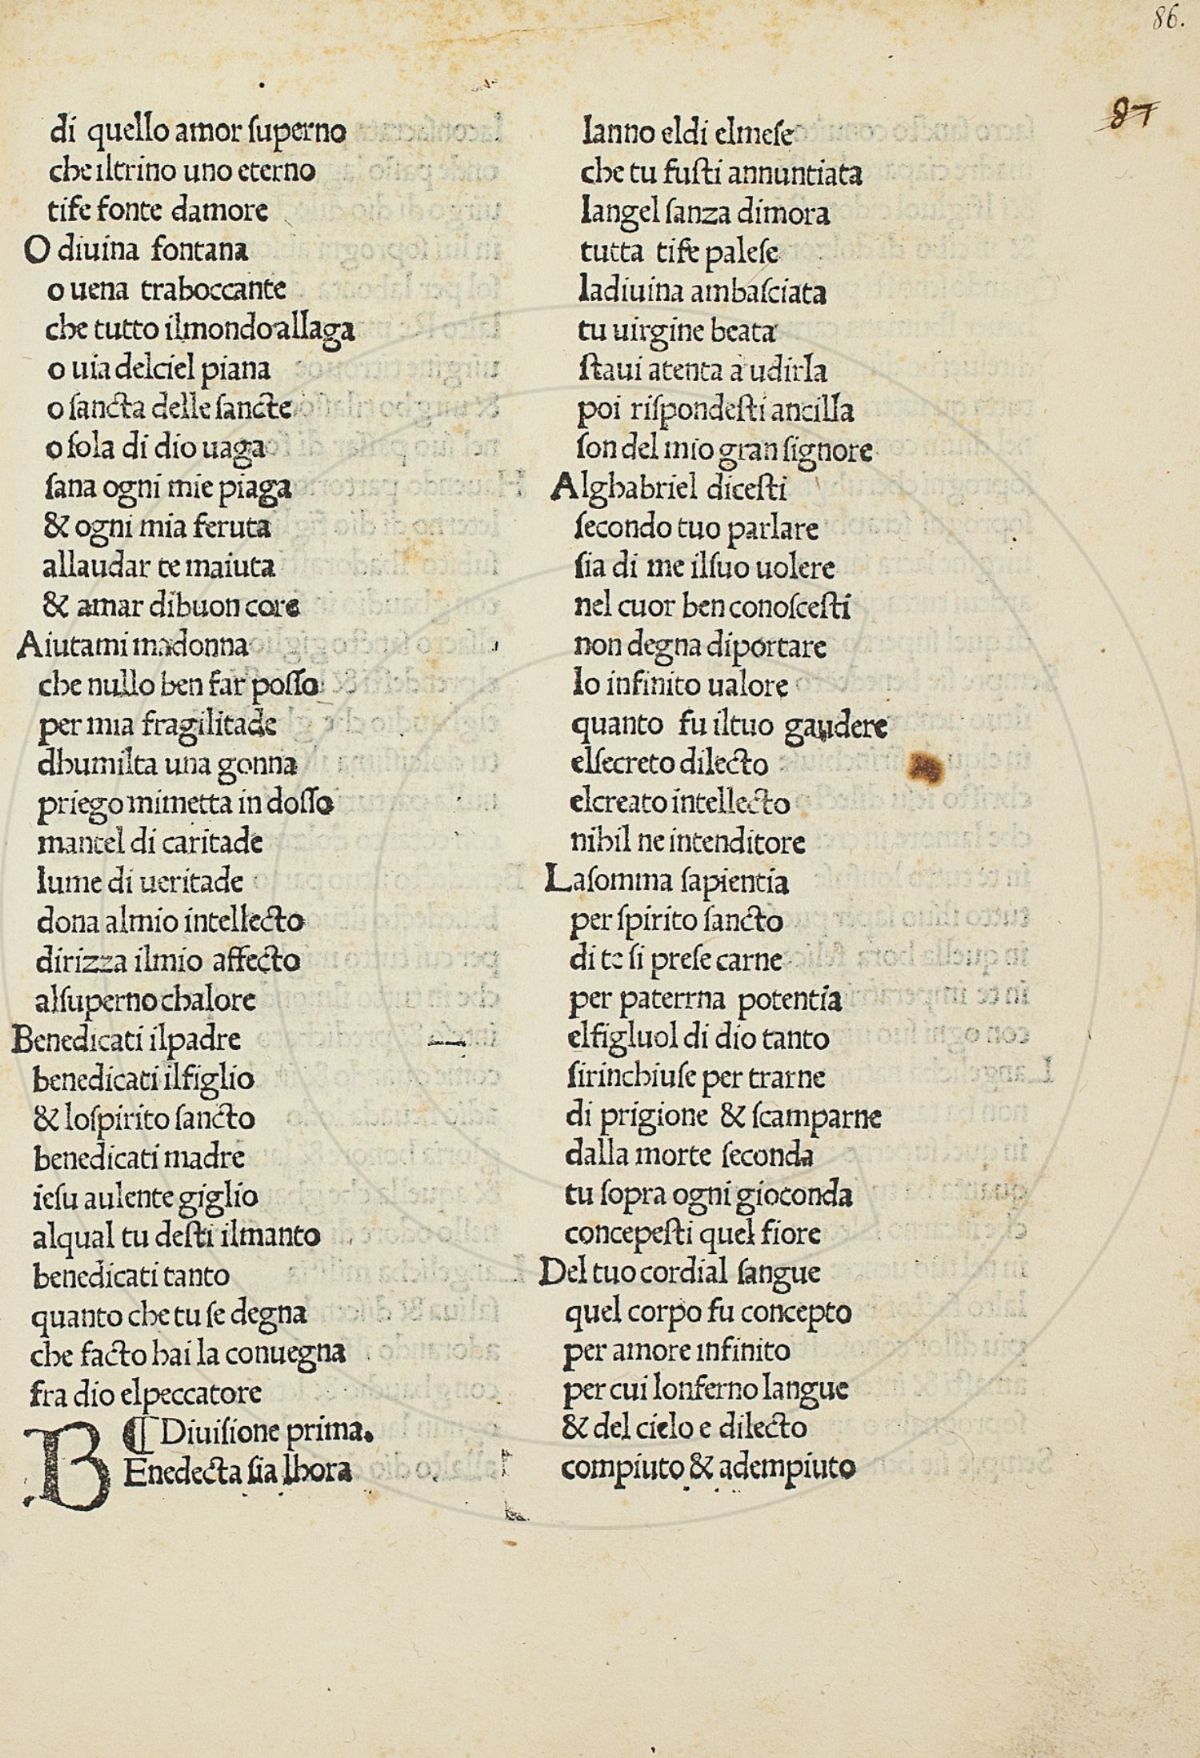 86.
87
di quello amor ſuperno
che iltrino uno eterno
tife fonte damore
O diuina fontana
o uena traboccante
che tutto ilmondo allaga
o uia delciel piana
o ſancta delle ſancte
o ſola di dio uaga
ſana ogni mie piaga
& ogni mia feruta
allaudar te maiuta
& amar dibuon core
Aiutami madonna
che nullo ben far poſſo
per mia fragilitade
dhumilta una gonna
priego mimetta in doſſo
mantel di caritade
lume di ueritade
dona almio intellecto
dirizza ilmio affecto
alſuperno chalore
Benedicati ilpadre
benedicati ilfiglio
& loſpirito ſancto
benedicati madre
ieſu aulente giglio
alqual tu deſti ilmanto
benedicati tanto
quanto che tu ſe degna
che facto hai la conuegna
fra dio elpeccatore
¶ Diuiſione prima.
BEnedecta ſia lhora
lanno eldi elmeſe
che tu fuſti annuntiata
langel ſanza dimora
tutta tife paleſe
ladiuina ambaſciata
tu uirgine beata
ſtaui atenta a udirla
poi riſpondeſti ancilla
ſon del mio gran ſignore
Alghabriel diceſti
ſecondo tuo parlare
ſia di me ilſuo uolere
nel cuor ben conoſceſti
non degna diportare
lo infinito ualore
quanto fu iltuo gaudere
elſecreto dilecto
elcreato intellecto
nihil ne intenditore
Laſomma ſapientia
per ſpirito ſancto
di te ſi preſe carne
per paterrna potentia
elfigluol di dio tanto
ſirinchiuſe per trarne
di prigione & ſcamparne
dalla morte ſeconda
tu ſopra ogni gioconda
concepeſti quel fiore
Del tuo cordial ſangue
quel corpo fu concepto
per amore infinito
per cui lonferno langue
& del cielo e dilecto
compiuto & adempiuto